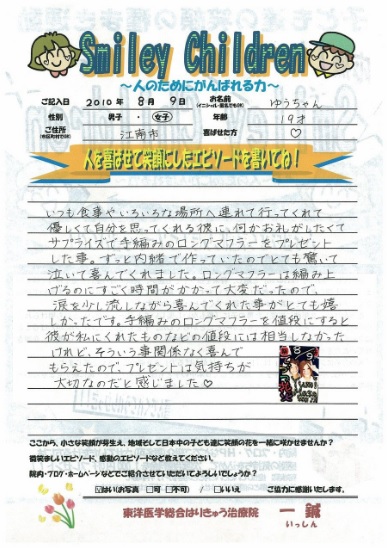 Smiley Children
～人のためにがんばれる力～
ご記入日 2010年 8月 9日 お名前 ゆうちゃん
(イニシャル・匿名でもOK)
性別 男子・女子 年齢 19才
ご住所 江南市 喜ばせた方 ♡
人を喜ばせて笑顔にしたエピソードを書いてね！
いつも食事やいろいろな場所へ連れて行ってくれて
優しくて自分を思ってくれる彼に、何かお礼がしたくて
サプライズで手編みのロングマフラーをプレゼント
した事。ずっと内緒で作っていたのでとても驚いて
泣いて喜んでくれました。ロングマフラーは編み上
げるのにすごく時間がかかって大変だったので、
涙を少し流しながら喜んでくれた事がとても嬉
しかったです。手編みのロングマフラーを値段にすると
彼が私にくれたものなどの値段には相当しなかった
けれど、そういう事関係なく喜んで
もらえたので、プレゼントは気持ちが
大切なのだと感じました♡
ここから、小さな笑顔が芽生え、地域そして日本中の子ども達に笑顔の花を一緒に咲かせませんか？
微笑ましいエピソード、感動のエピソードなど教えてください。
院内・ブログ・ホームページなどでご紹介させていただいてよろしいでしょうか？
☑はい(お写真 □可 □不可) / □いいえ ご協力に感謝いたします。
東洋医学総合はりきゅう治療院 一鍼
いっしん